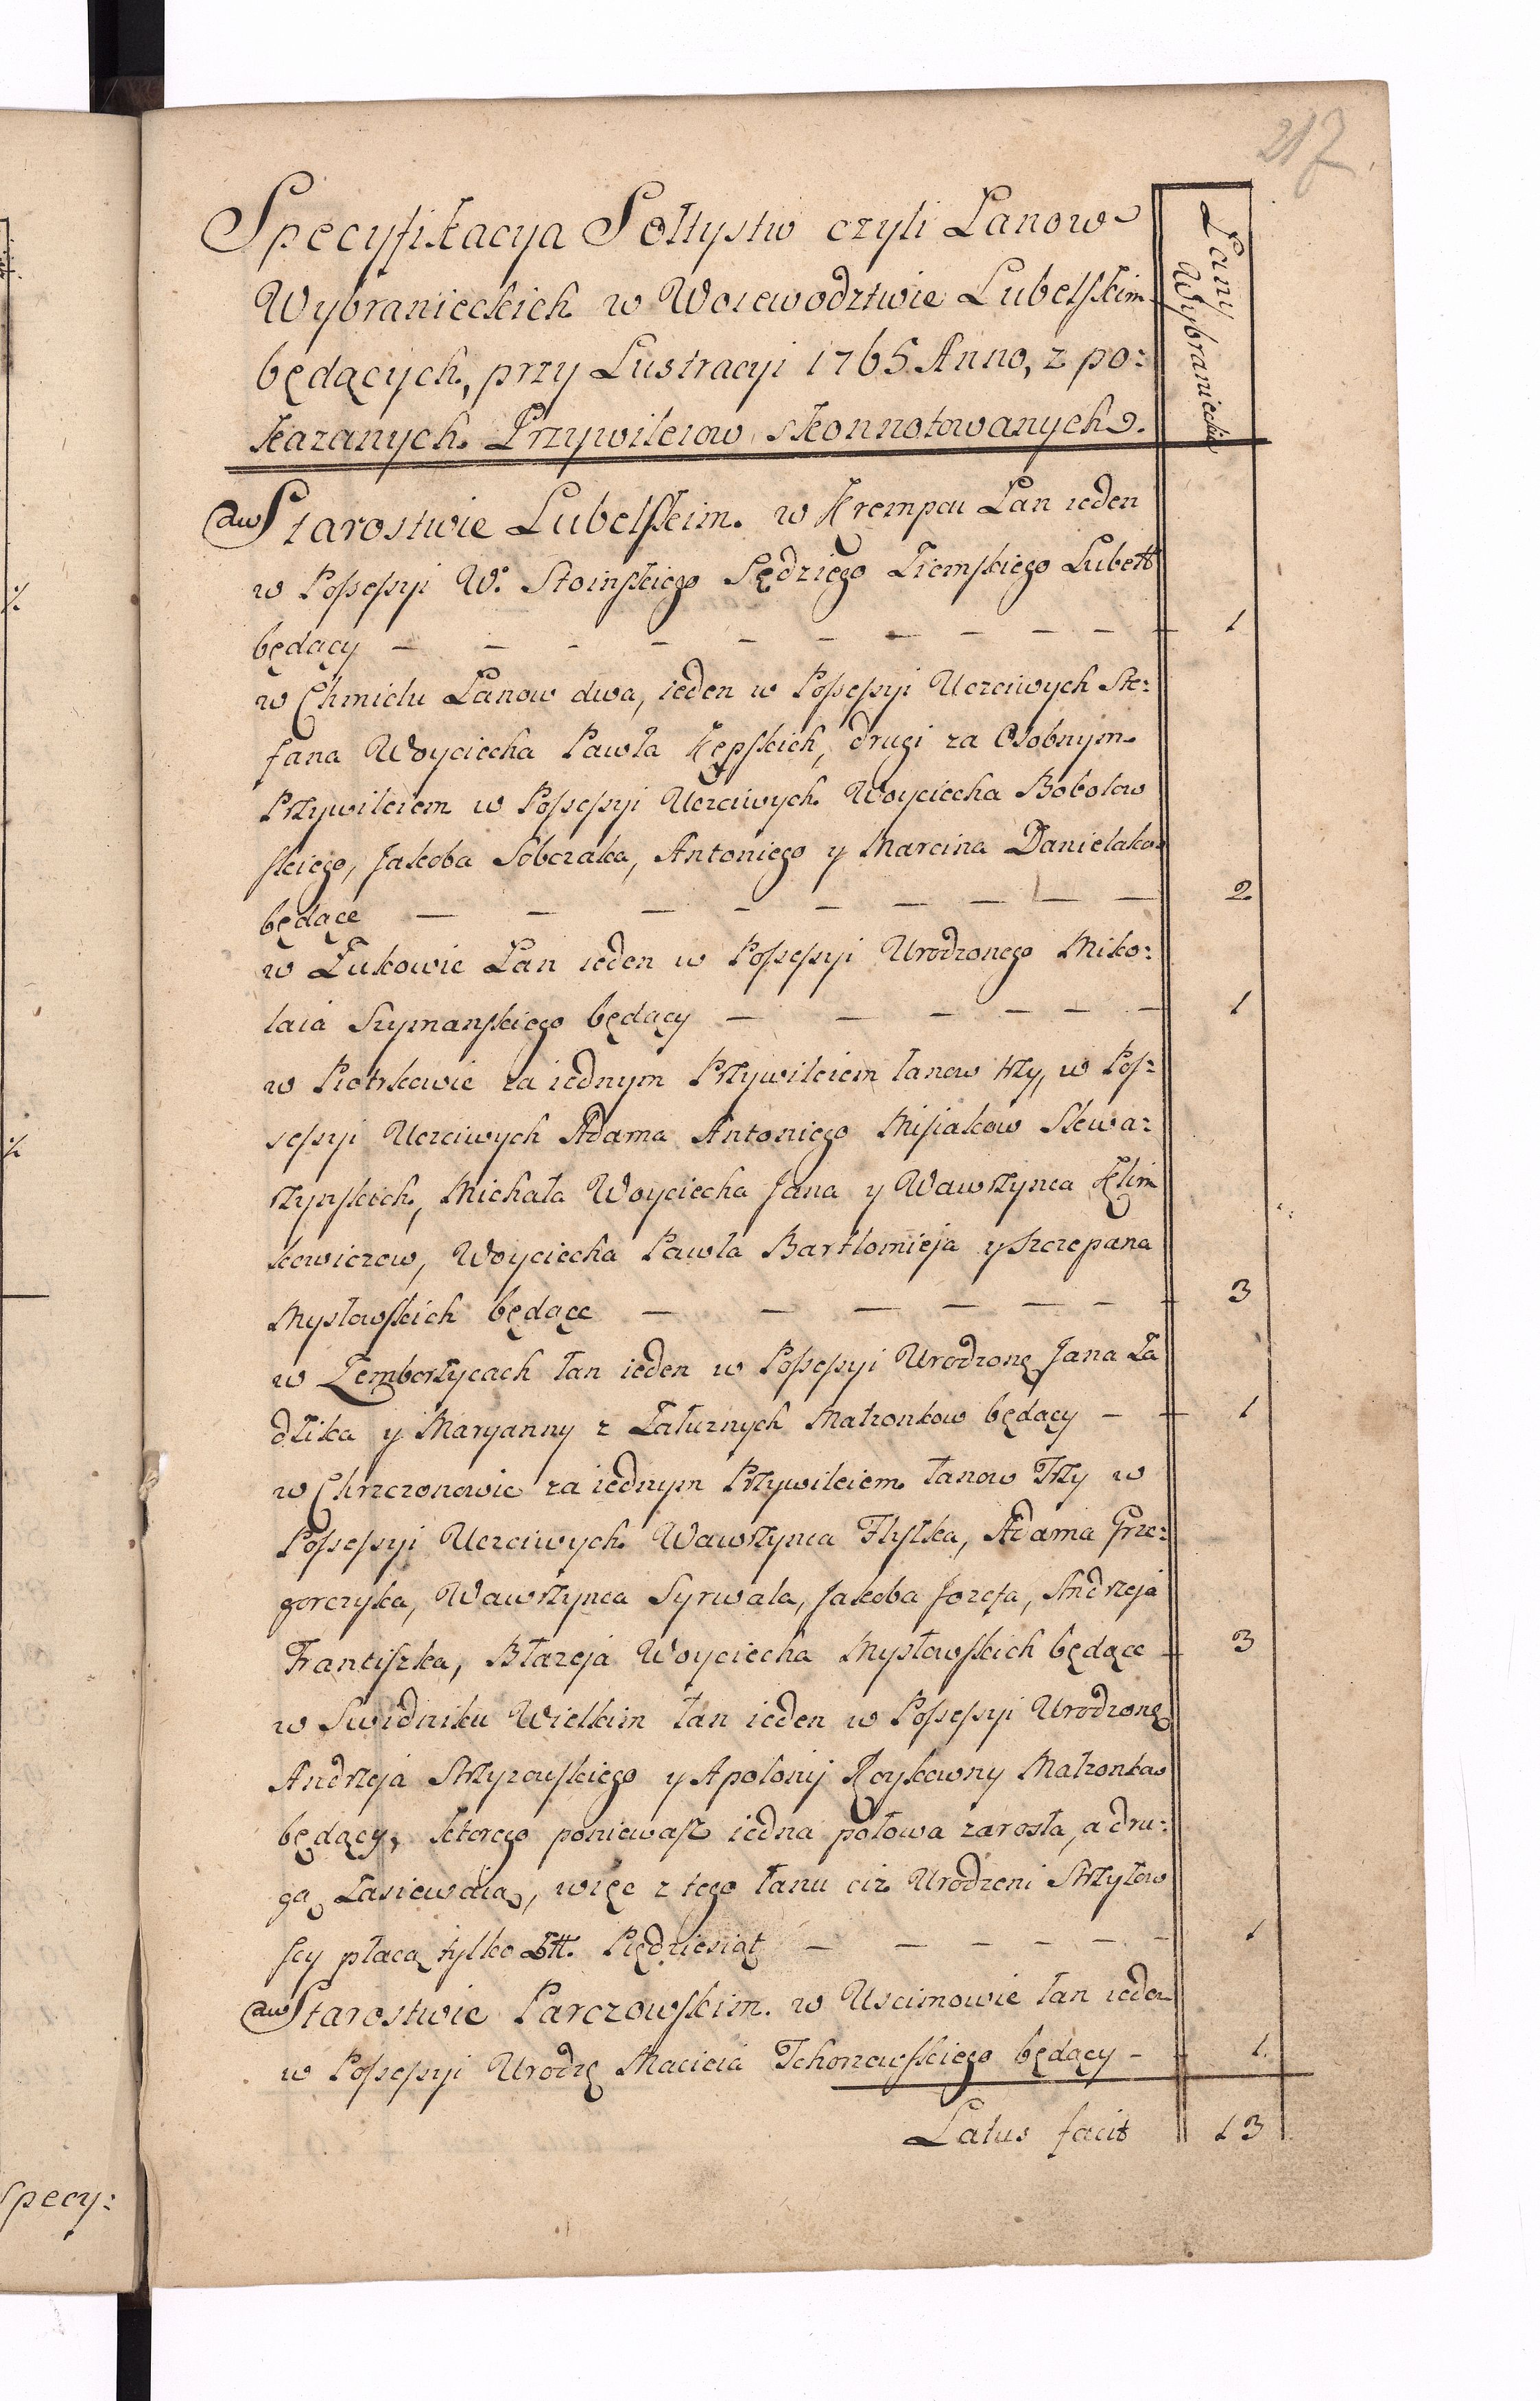 217.
Specyfikacyja Sołtystw czyli Łanow
Wybranieckich w Woiewodztwie Lubelskim
będących, przy Lustracyi 1765 Anno, z po:
kazanych Przywileiow skonnotowanych.
Łany
Wybranieckie
w Starostwie Lubelskim. w Krempcu Łan ieden
w Possessyi W. Stoinskiego Sędziego Ziemskiego Lubelł
będący — — — — — — — — — — 1
w Chmielu Łanow dwa, ieden w Possessyi Uczciwych Ste:
fana Woyciecha Pawła Kępskich, drugi za Osobnym
Przywileiem w Possessyi Uczciwych Woyciecha Bobolow
skiego, Jakoba Sobczaka, Antoniego y Marcina Danielakow
będące — — — — — — — — — 2
w Żukowie Łan ieden w Possessyi Urodzonego Miko:
łaia Szymanskiego będący — — — — — — 1
w Piotrkowie za iednym Przywileiem łanow trzy, w Pos:
sessyi Uczciwych Adama Antoniego Misiakow Skwa:
rzynskich, Michała Woyciecha Jana y Wawrzynca Klim
kowiczow, Woyciecha Pawła Bartłomieja y Szczepana
Mysłowskich będące — — — — — — 3
w Zemborzycach łan ieden w Possessyi Urodzonę Jana Ża
dłika y Maryanny z Załuznych Małzonkow będący — 1
w Chrzczonowie za iednym Przywileiem łanow Trzy w
Possessyi Uczciwych Wawrzynca Flyska, Adama Grze:
gorczyka, Wawrzynca Syrwala, Jakoba Jozefa, Andrzeja
Franciszka, Błazeja Woyciecha Mysłowskich będące 3
w Swidniku Wielkim łan ieden w Possessyi Urodzonę
Andrzeja Strzyzowskiego y Apolonij Koykowny Małzonkow
będący, ktorego poniewasz iedna połowa zarosła, a dru:
gą Zasiewaią, więc z tego łanu ciz Urodzeni Strzyżow
scy płacą tylko Złł. Pięddziesiąt — — — — — — 1
w Starostwie Parczowskim. w Uscimowie łan ieden
w Possessyi Urodzę Macieia Tchorzewskiego będący — 1.
Latus facit 13
Specy: